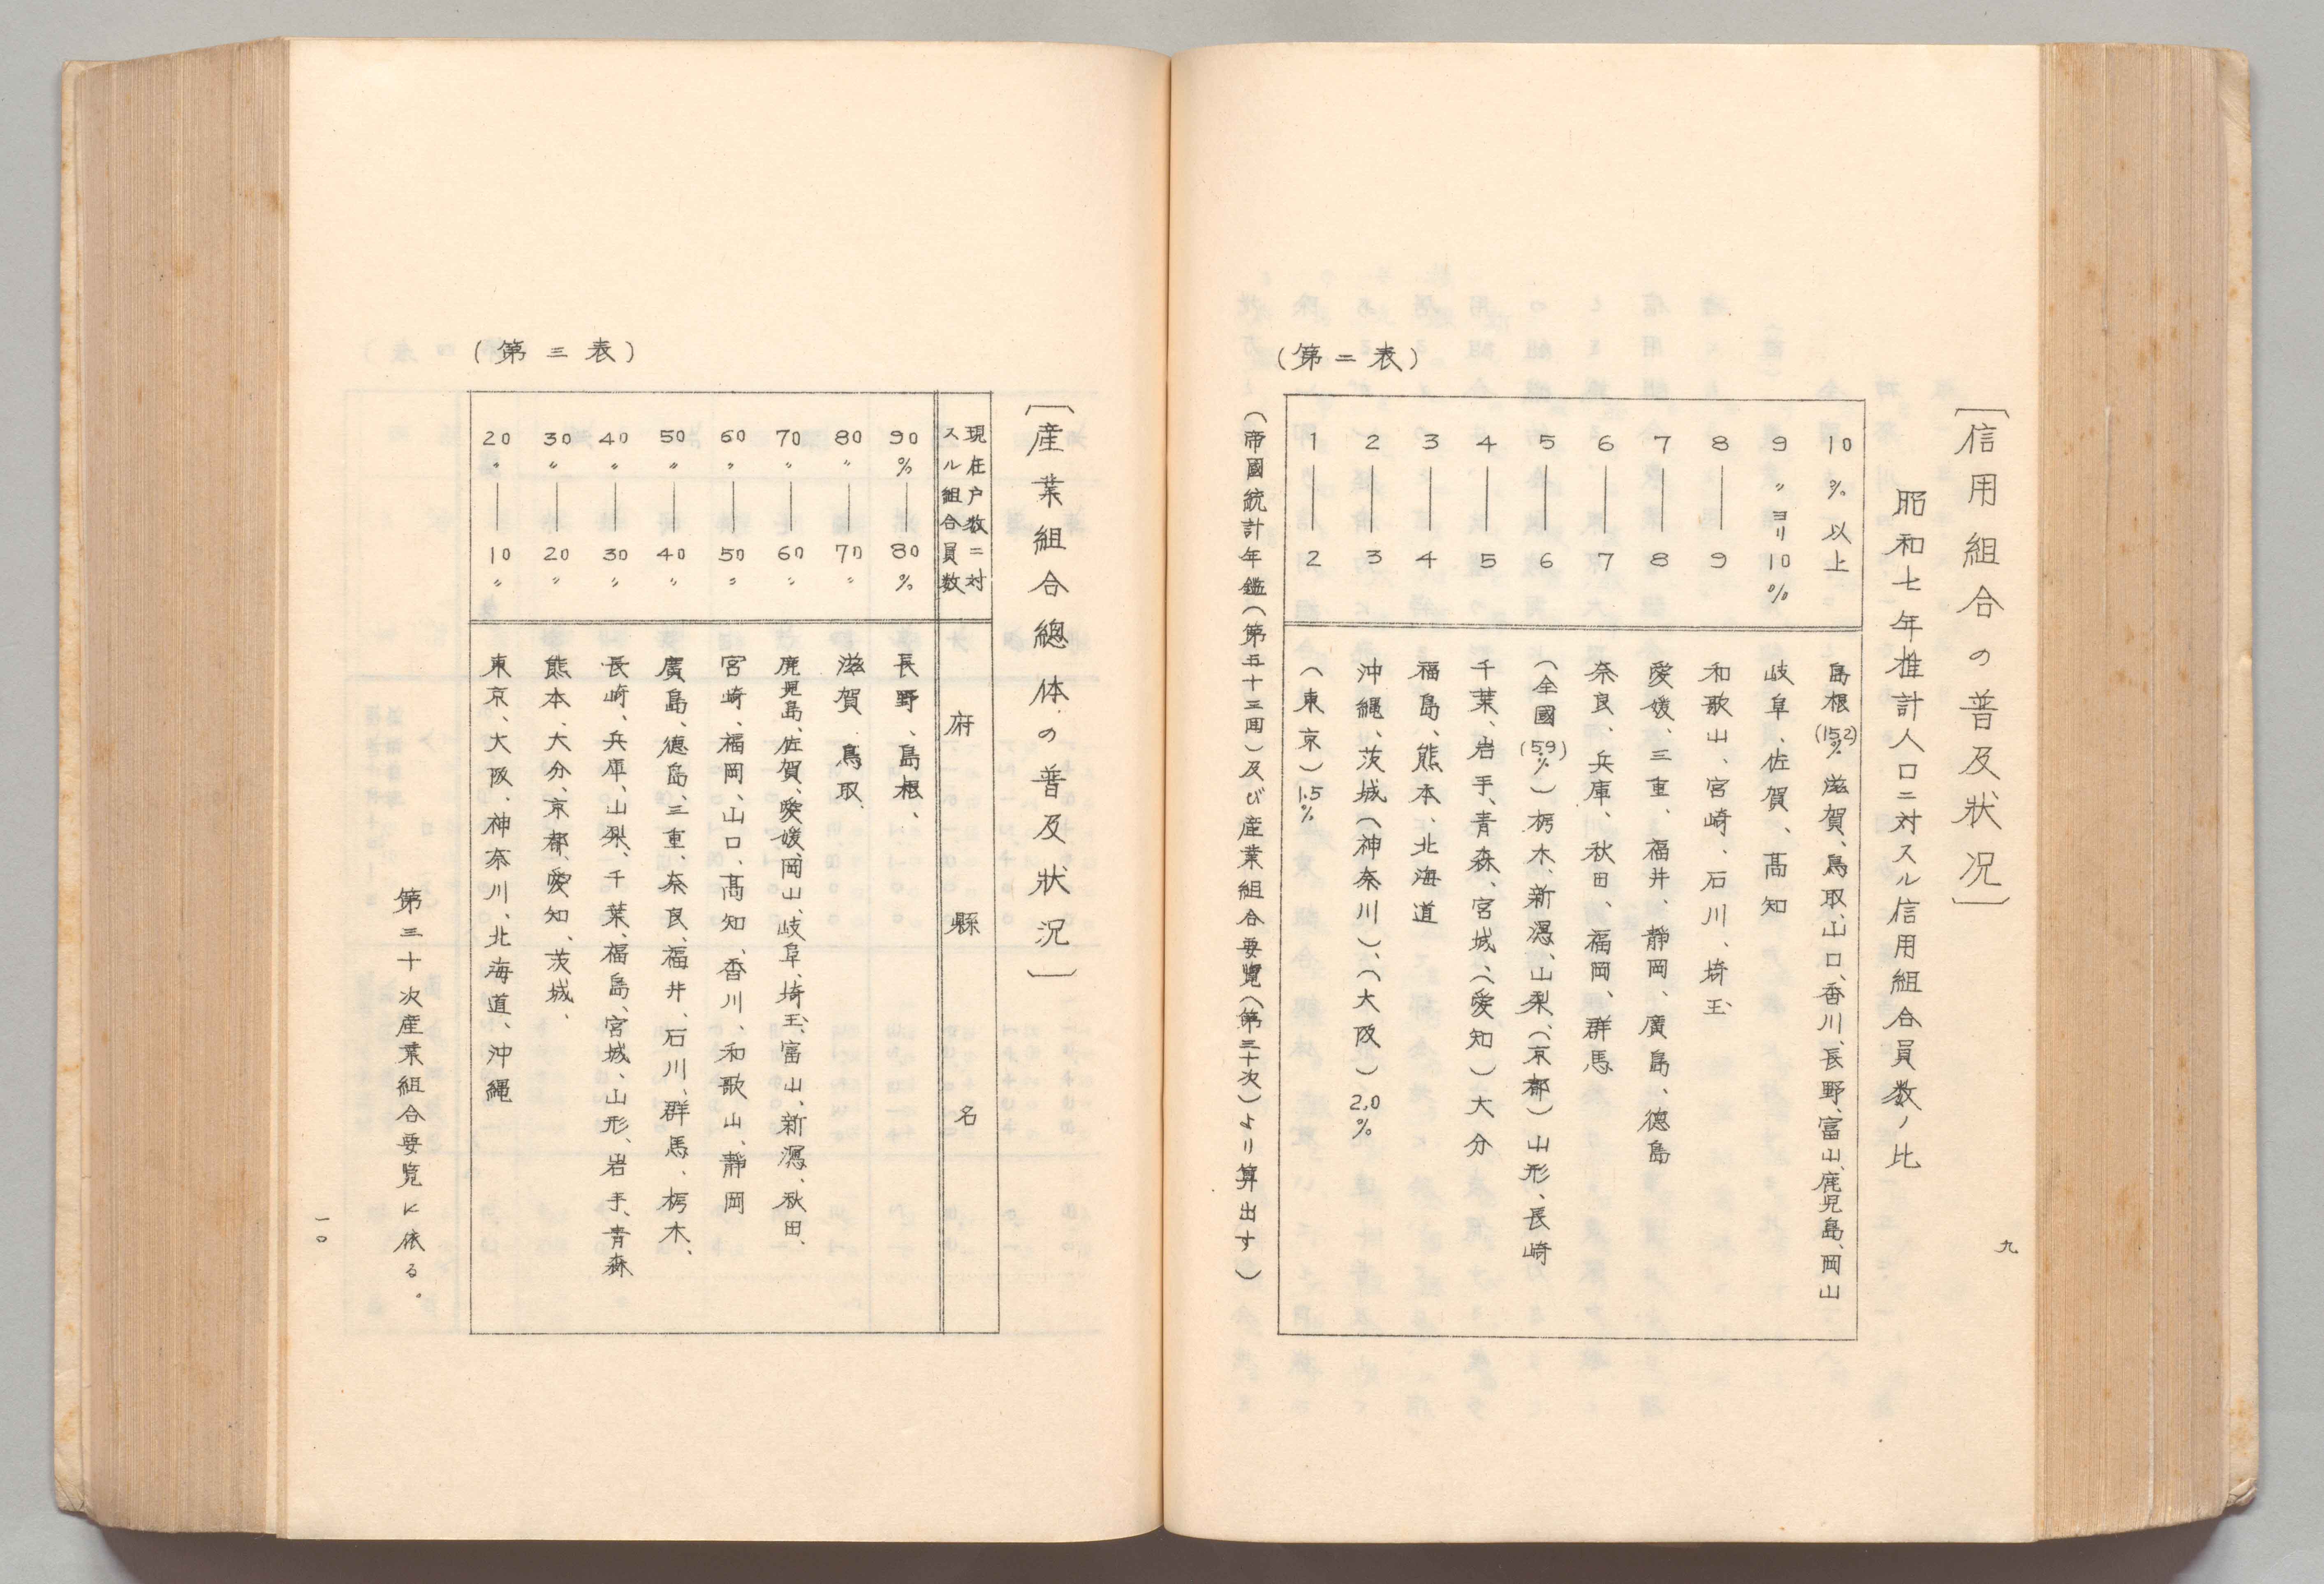 九
〔信用組合の普及状況〕
昭和七年推計人口ニ対スル信用組合員数ノ比
(第二表)
10%以上 島根(15.2%)滋賀、鳥取、山口、香川、長野、富山、鹿児島、岡山
9〃ヨリ10% 岐阜、佐賀、高知
8――9 和歌山、宮崎、石川、埼玉
7――8 愛媛、三重、福井、静岡、廣島、徳島
6――7 奈良、兵庫、秋田、福岡、群馬
5――6 (全國(5.9%))栃木、新潟、山梨、(京都)山形、長崎
4――5 千葉、岩手、青森、宮城、(愛知)大分
3――4 福島、熊本、北海道
2――3 沖縄、茨城(神奈川)、(大阪)2.0%
1――2 (東京)1.5%
(帝國統計年鑑(第五十三回)及び産業組合要覧(第三十次)より算出す)
〔産業組合總体の普及状況〕
(第三表)
現在戸数ニ対スル組合員数 府縣名
90%――80% 長野、島根、
80〃――70〃 滋賀 鳥取、
70〃――60〃 鹿児島、佐賀、愛媛、岡山、岐阜、埼玉、富山、新潟、秋田、
60〃――50〃 宮崎、福岡、山口、高知、香川、和歌山、静岡
50〃――40〃 廣島、徳島、三重、奈良、福井、石川、群馬、栃木、
40〃――30〃 長崎、兵庫、山梨、千葉、福島、宮城、山形、岩手、青森
30〃――20〃 熊本、大分、京都、愛知、茨城、
20〃――10〃 東京、大阪、神奈川、北海道、沖縄
第三十次産業組合要覧に依る。
一〇